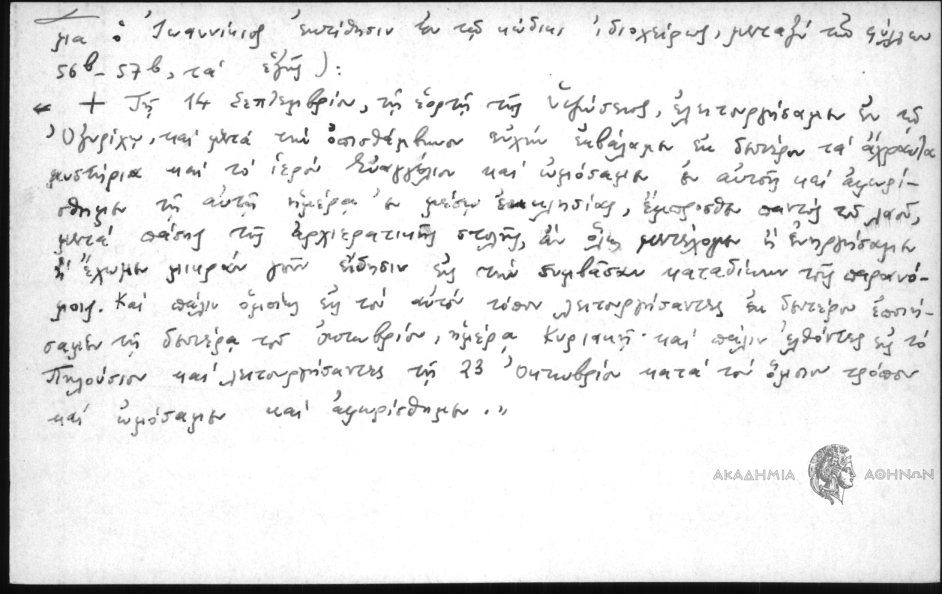 μια ὁ Ἰωαννίκιος ἐκτίθησιν ἐν τῷ κώδικι ἰδιοχείρως, μεταξὺ τῶν φύλλων
56b - 57b, τὰ ἑξῆς):
« + Τῇ 14 Σεπτεμβρίου, τῇ ἑορτῇ τῆς Ὑψώσεως, ἐλειτουργήσαμεν ἐν τῷ
Ὀξυρίχῳ, καὶ μετὰ τὴν ὀπισθάμβωνον εὐχὴν ἐκβάλαμεν ἐκ δευτέρου τὰ ἄχραντα
μυστήρια καὶ τὸ ἱερὸν Εὐαγγέλιον καὶ ὠμόσαμεν ἐν αὐτοῖς καὶ ἀφωρί-
σθημεν τῇ αὐτῇ ἡμέρᾳ ἐν μέσῳ ἐκκλησίας, ἔμπροσθεν παντὸς τοῦ λαοῦ,
μετὰ πάσης τῆς ἀρχιερατικῆς στολῆς, ἂν ὅλως μετέχομεν ἢ ἐνηργήσαμεν
ἢ ἔχωμεν μικρὰν γοῦν εἴδησιν εἰς τὴν συμβᾶσαν καταδίκην τοῖς παρανό-
μοις. Καὶ πάλιν ὁμοίως εἰς τὸν αὐτὸν τόπον λειτουργήσαντες ἐκ δευτέρου ἐποιή-
σαμεν τῇ δευτέρᾳ τοῦ ὀκτωβρίου, ἡμέρᾳ Κυριακῇ· καὶ πάλιν ἐλθόντες εἰς τὸ
Πηλούσιον καὶ λειτουργήσαντες τῇ 23 Ὀκτωβρίου κατὰ τὸν ὅμοιον τρόπον
καὶ ὠμόσαμεν καὶ ἀφωρίσθημεν.»
ΑΚΑΔΗΜΙΑ ΑΘΗΝΩΝ